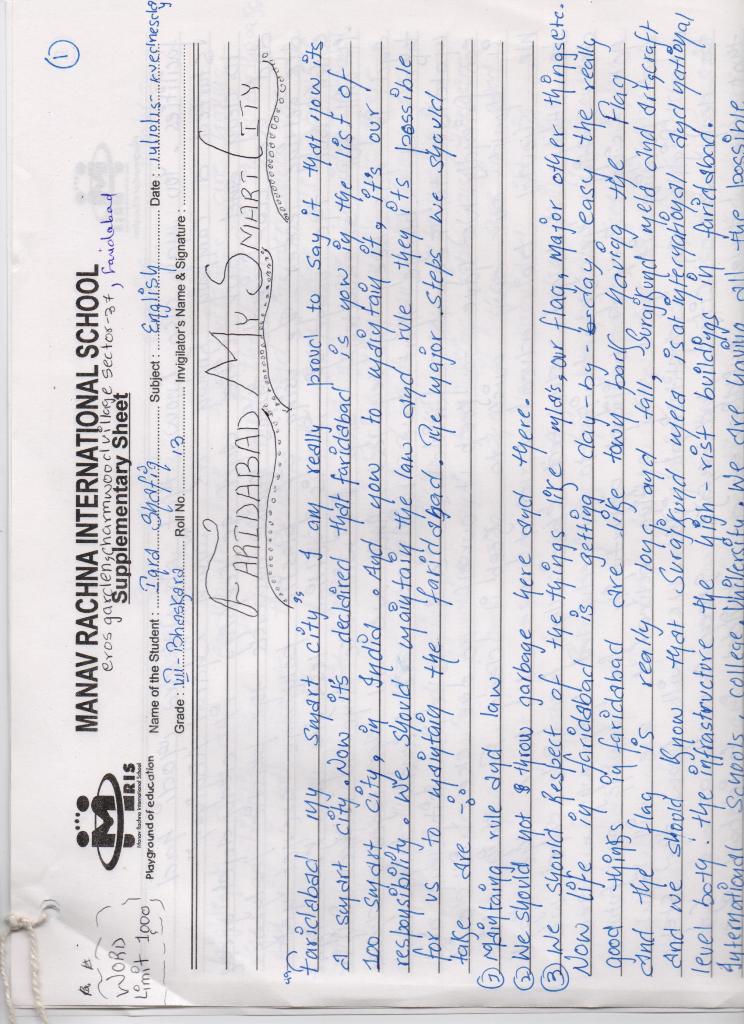 1
MANAV RACHNA INTERNATIONAL SCHOOL
eros garden, charmwood village sector-37, faridabad
Supplementary Sheet
MRIS
Manav Rachna International School
Playground of education
WORD
Limit 1000
Name of the Student : Iqra Shafiq Subject : English Date : Wednesday
Grade : VII-Bhaskara Roll No. 13 Invigilator's Name & Signature :
FARIDABAD MY SMART CITY
"Faridabad my smart city", I am really proud to say it that now its
a smart city. Now its declaired that faridabad is now in the list of
100 smart city, in India. And now to maintain it, it's our
responsibility. We should maintain the law and rule they its possible
for us to maintain the faridabad. The major steps we should
take are -:
① Maintaing rule and law
② We should not throw garbage here and there.
③ We should Respect of the things like mla's, our flag, major other things etc.
Now life in faridabad is getting day-by-day easy the really
good things in faridabad are like town park having the flag
and the flag is really long and tall, Surajkund mela and artscraft
And we should know that Surajkund mela, is at international and national
level both. the infrastructure the high-rist buildings in faridabad.
International Schools, college, University. We are having all the possible